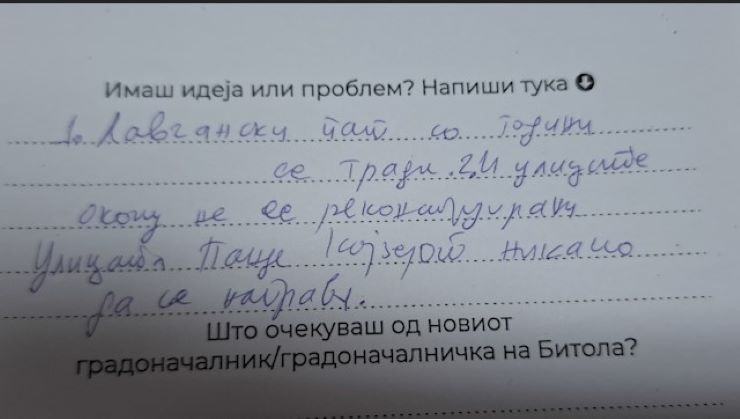 Имаш идеја или проблем? Напиши тука
1. Лавчански пат со години
се гради. 2. И улиците
околу не се реконструирани
Улицата Паце никако
да се направи.
Што очекуваш од новиот
градоначалник/градоначалничка на Битола?